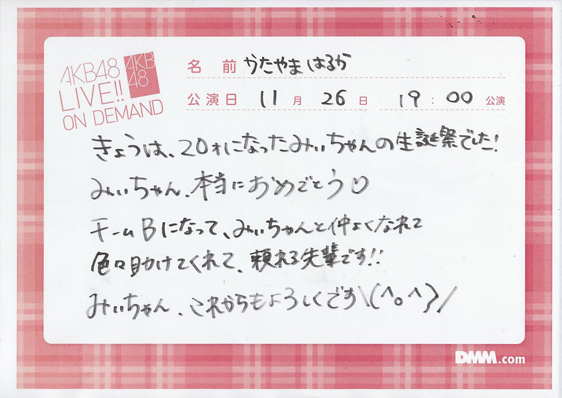 AKB48
LIVE!!
ON DEMAND
AKB
48
名 前 かたやま はるか
公演日 11 月 26 日 19 : 00 公演
きょうは、20才になったみぃちゃんの生誕祭でした!
みぃちゃん、本当におめでとう♡
チームBになって、みぃちゃんと仲よくなれて
色々助けてくれて、頼れる先輩です!!
みぃちゃん、これからもよろしくです\(^o^)/
DMM.com